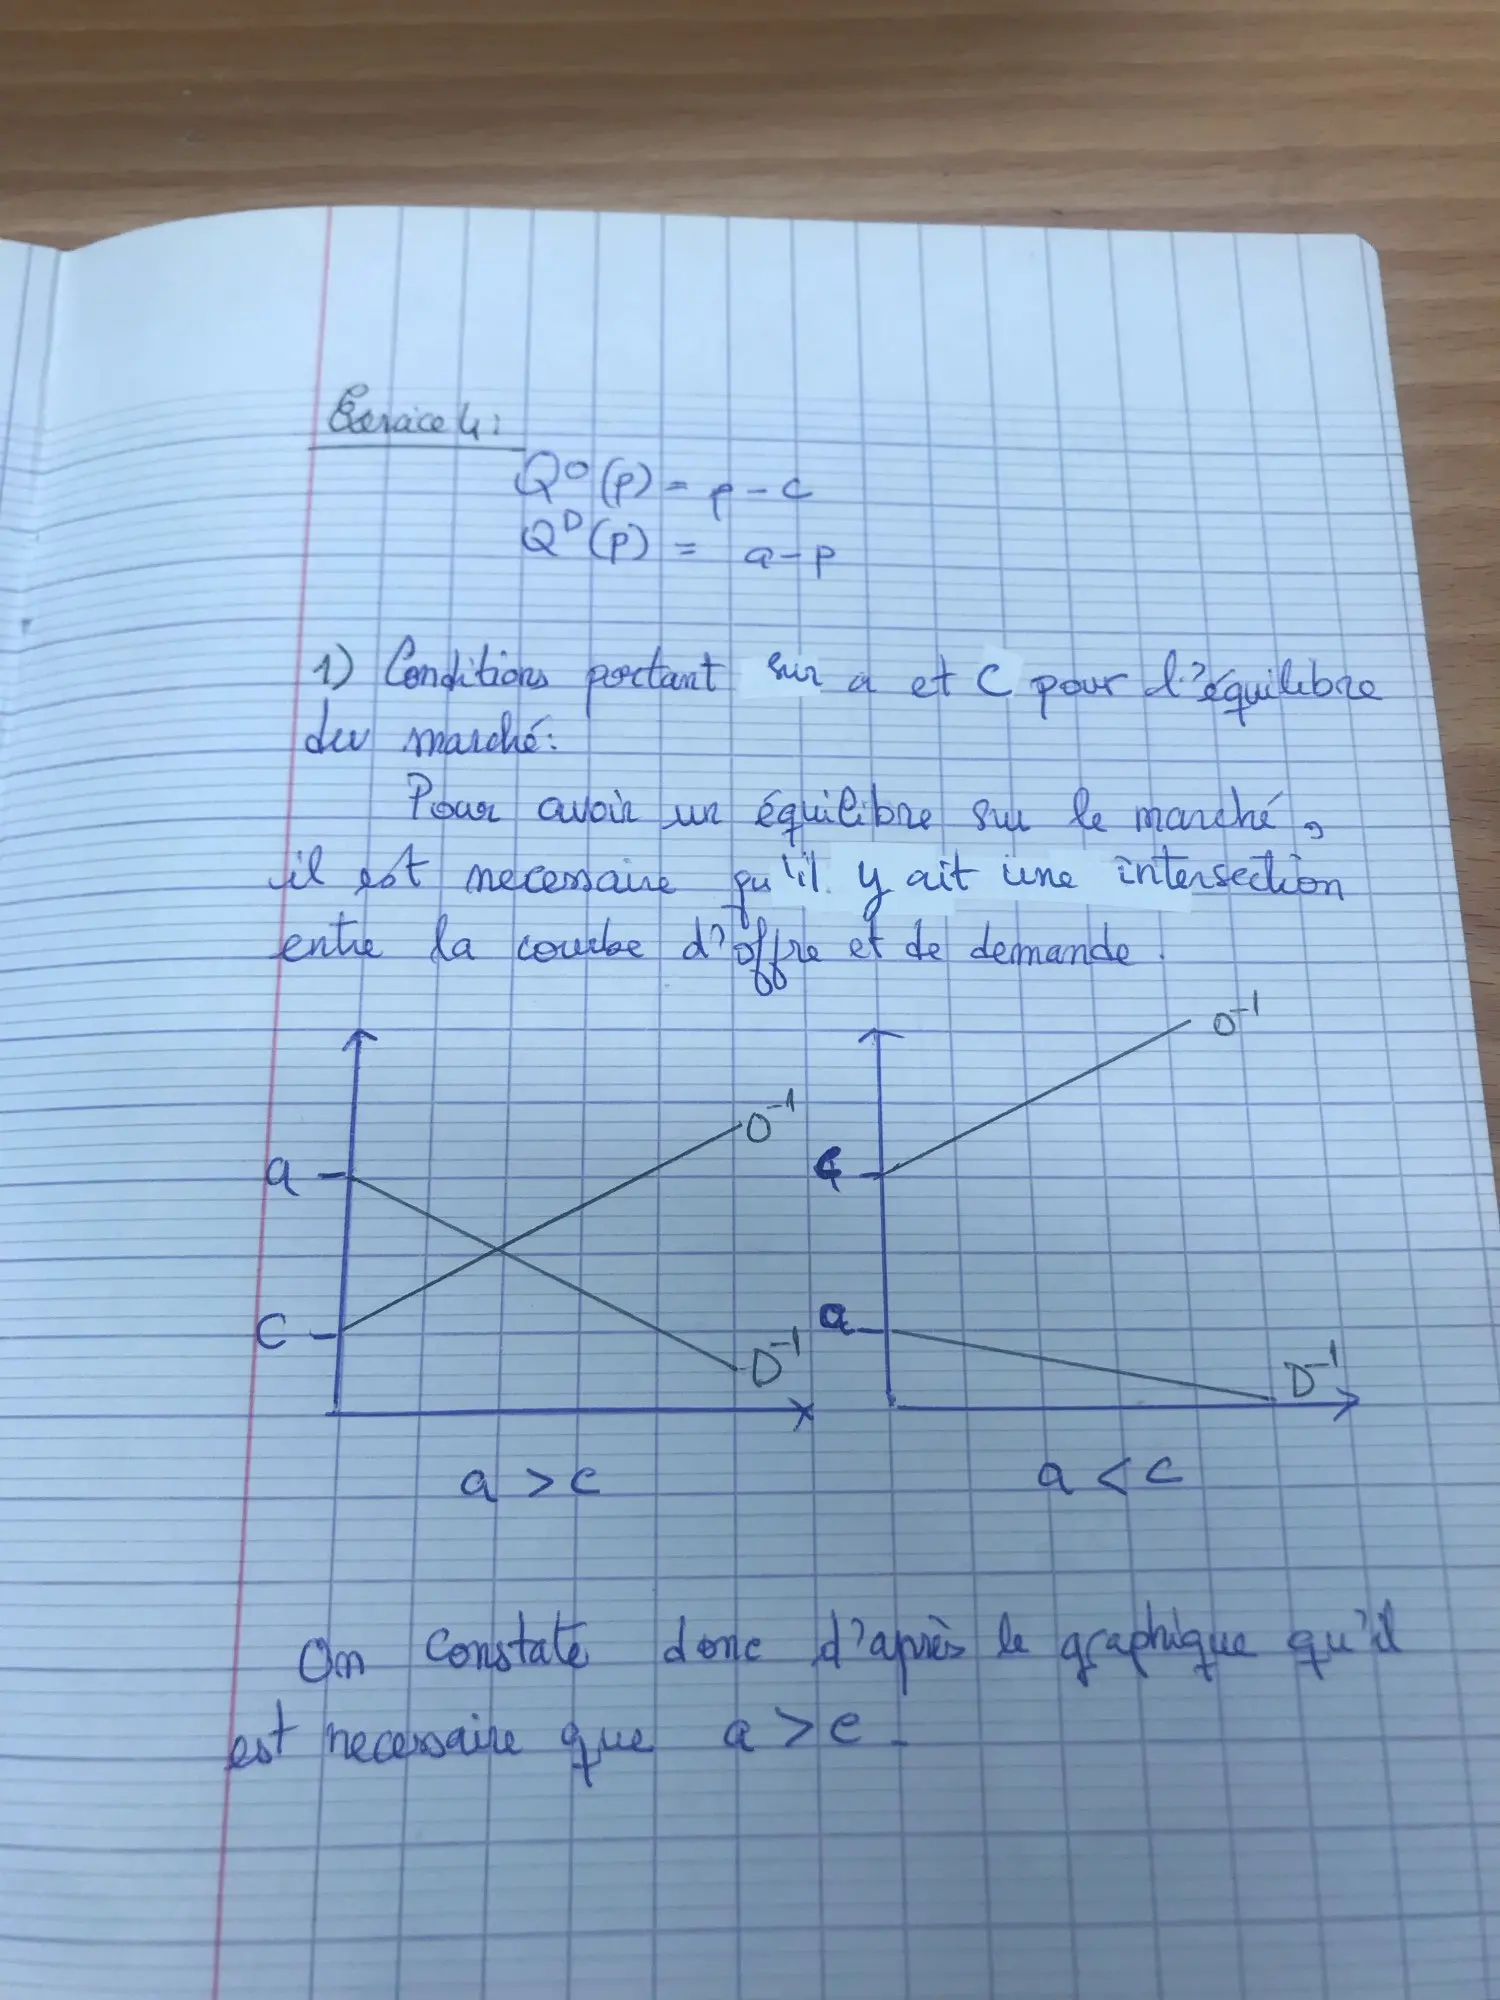 Exercice 4:
Q^O(p) = p - c
Q^D(p) = a - p
1) Conditions portant sur a et C pour l'équilibre
du marché:
Pour avoir un équilibre sur le marché,
il est necessaire qu'il y ait une intersection
entre la courbe d'offre et de demande.
O^-1
O^-1
a
C
C
a
D^-1
D^-1
a > c
a < c
On constate donc d'après le graphique qu'il
est necessaire que a > c.